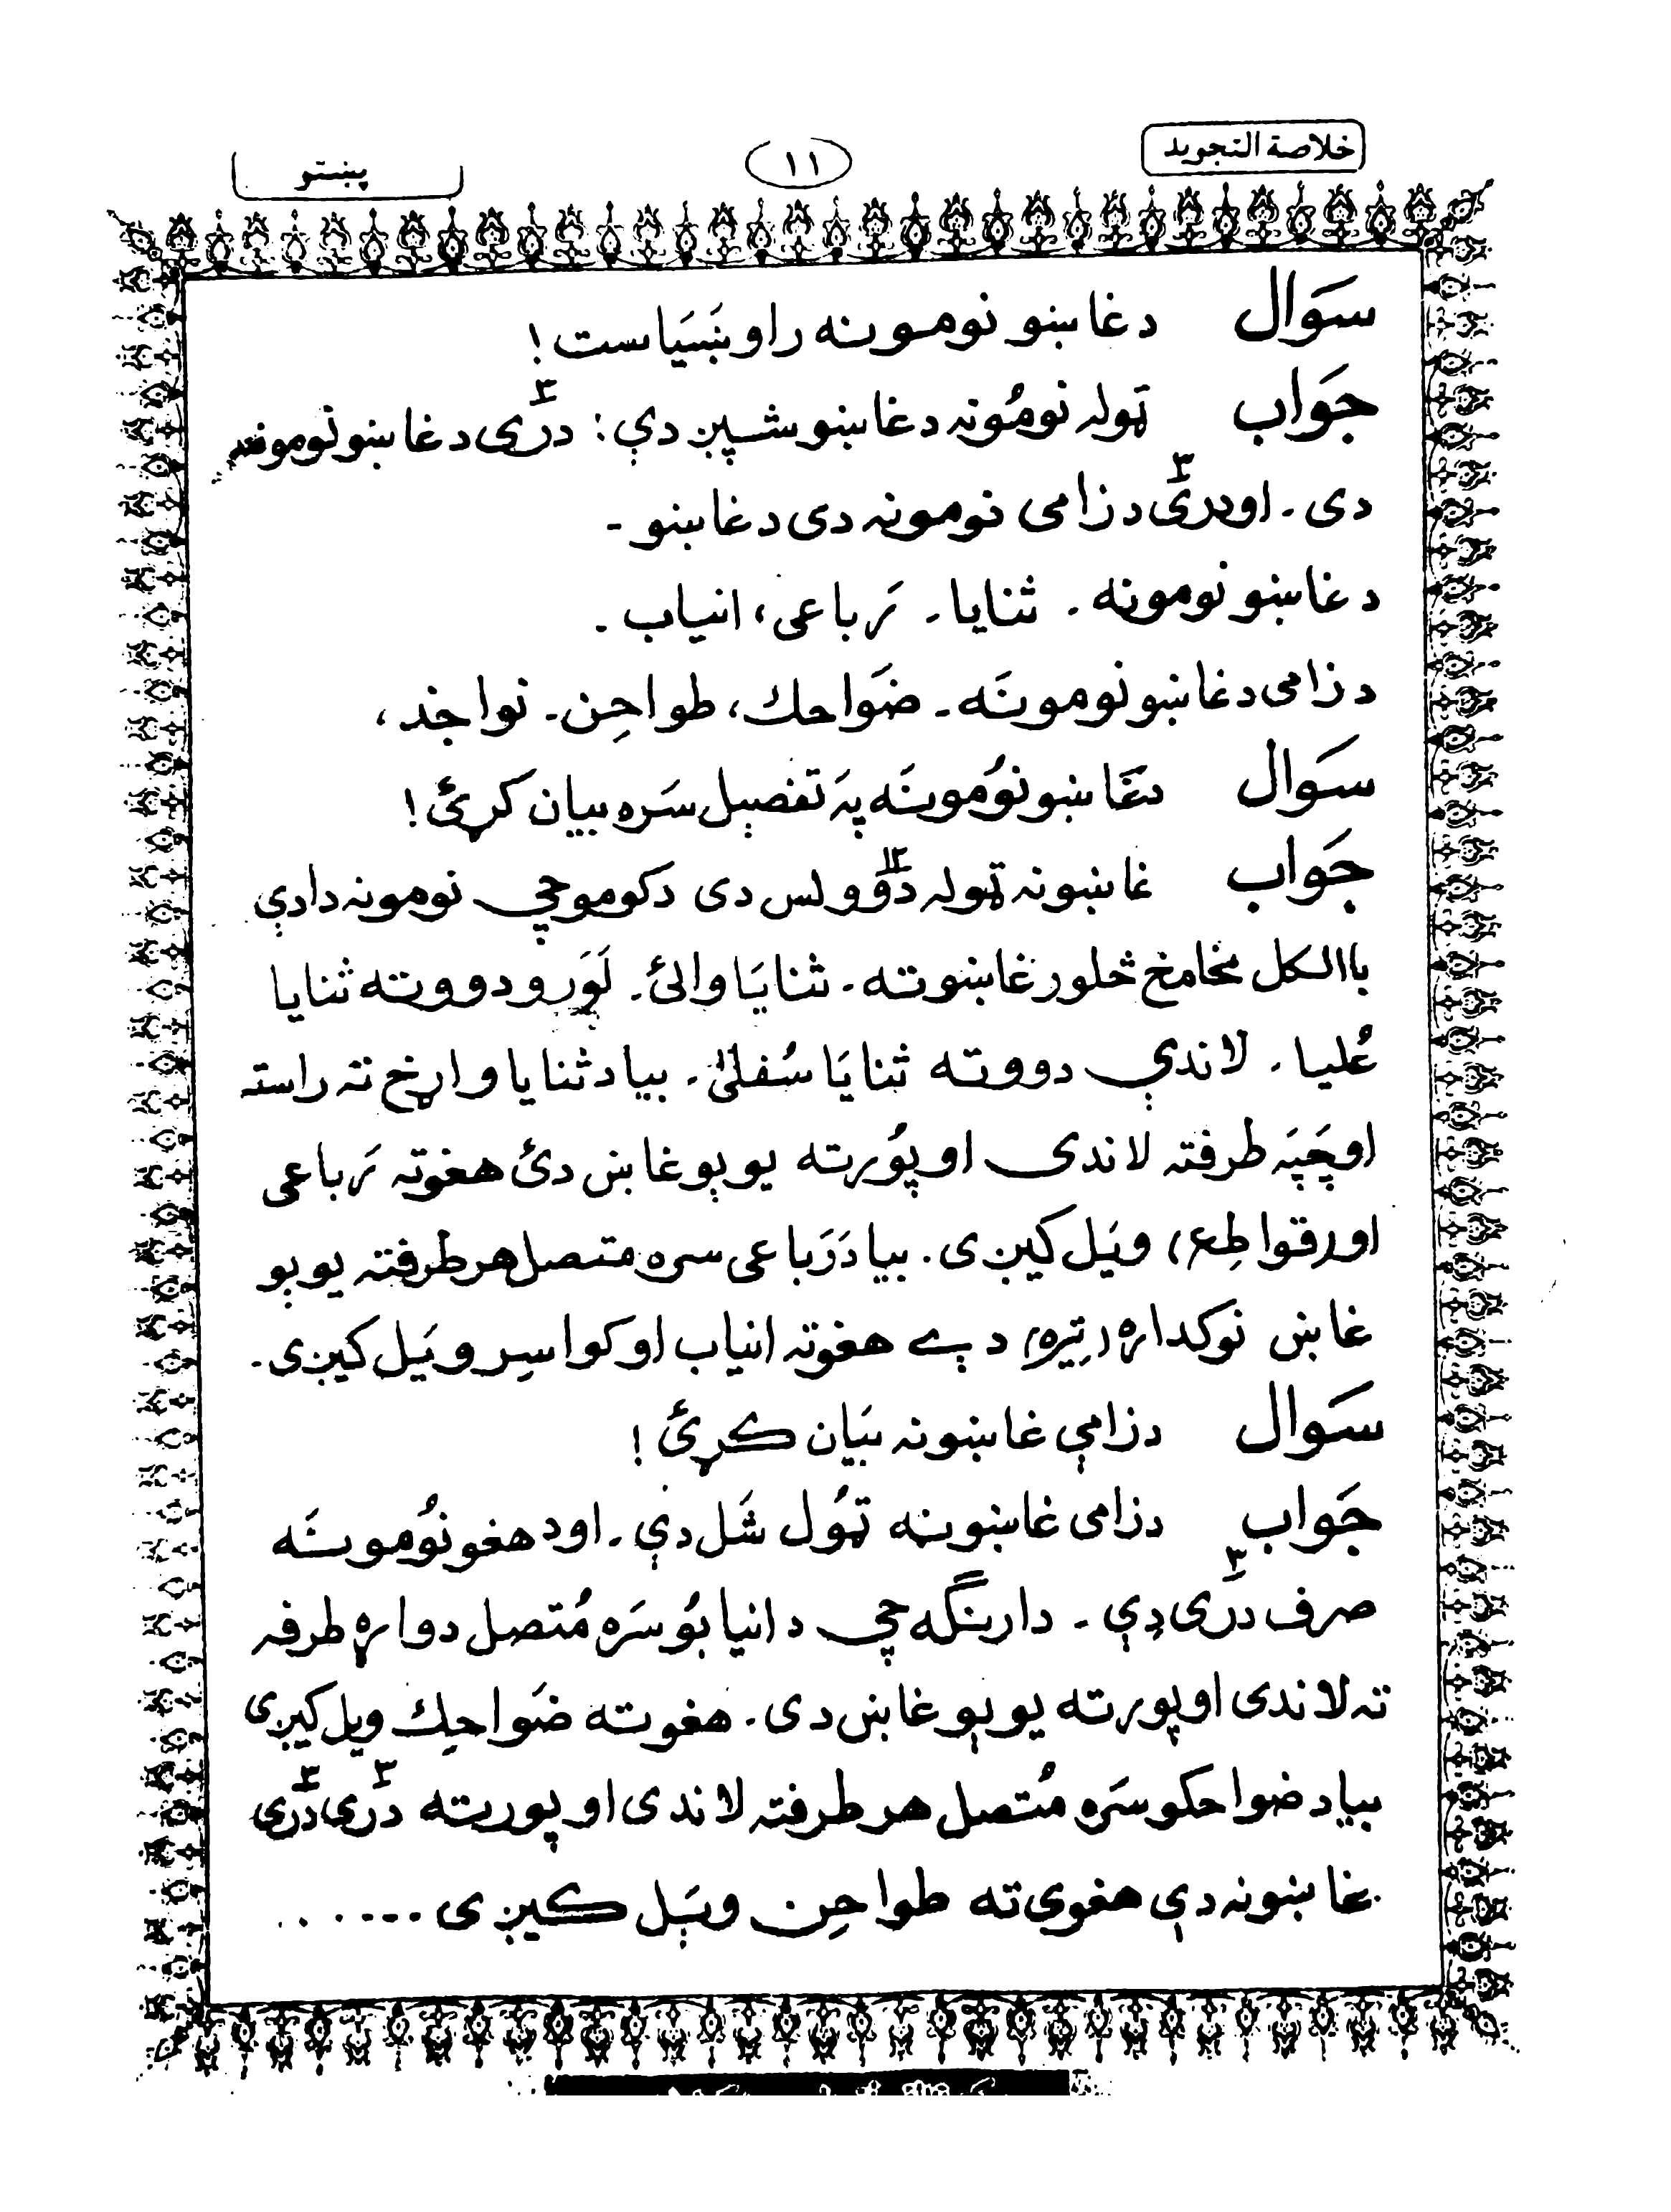 خلاصة التجويد
١١
پښتو
سَوال دغاښو نومونه راوښَيَاست!
جَواب ټوله نومُونه دغاښو شپږ دې: درَّی ٣ دغاښو نومونه
دی۔ اودرَّی ٣ دزامی نومونه دی دغاښو۔
دغاښو نومونه۔ ثنایا۔ رَباعی، انیاب۔
دزامی دغاښو نومونَه۔ ضَواحك، طواحِن۔ نواجذ،
سَوال دغَاښو نوُمونَه پهَ تفصېل سَره بيان کړئ!
جَواب غاښونه ټوله دوَّولس ١٢ دی دکوموچي نومونه دادې
باالکل مخامخ څلور غاښوته۔ ثنایَا وائی۔ لَوَړو دووته ثنایا
عُلیا۔ لاندې دووته ثنایَا سُفلیٰ۔ بیا دثنایا واړخ ته راسته
اوچَپَه طرفته لاندی اوپوُرته یویو غاښ دئ هغوته رَباعی
او(قواطِع) ویَل کیږی۔ بیا درَباعی سره متصل هرطرفته یویو
غاښ نوکداره (تِیره) دے هغوته انیاب اوکواسِر ویَل کیږی۔
سَوال دزامې غاښونه بیَان کړئ!
جَواب دزامی غاښونه ټوُل شَل دې۔ اود هغو نوُمونَه
صرف درَّی ٣ دې۔ دارنګه چي دانیابوُ سَره مُتصل دواړه طرفه
ته لاندی اوپورته یویو غاښ دی۔ هغوته ضَواحِك ویل کیږی
بیا دضواحکو سَره مُتصل هرطرفته لاندی اوپورته درَّی ٣ درَّی ٣
غاښونه دې هغوی ته طواحِن ویَل کیږی......